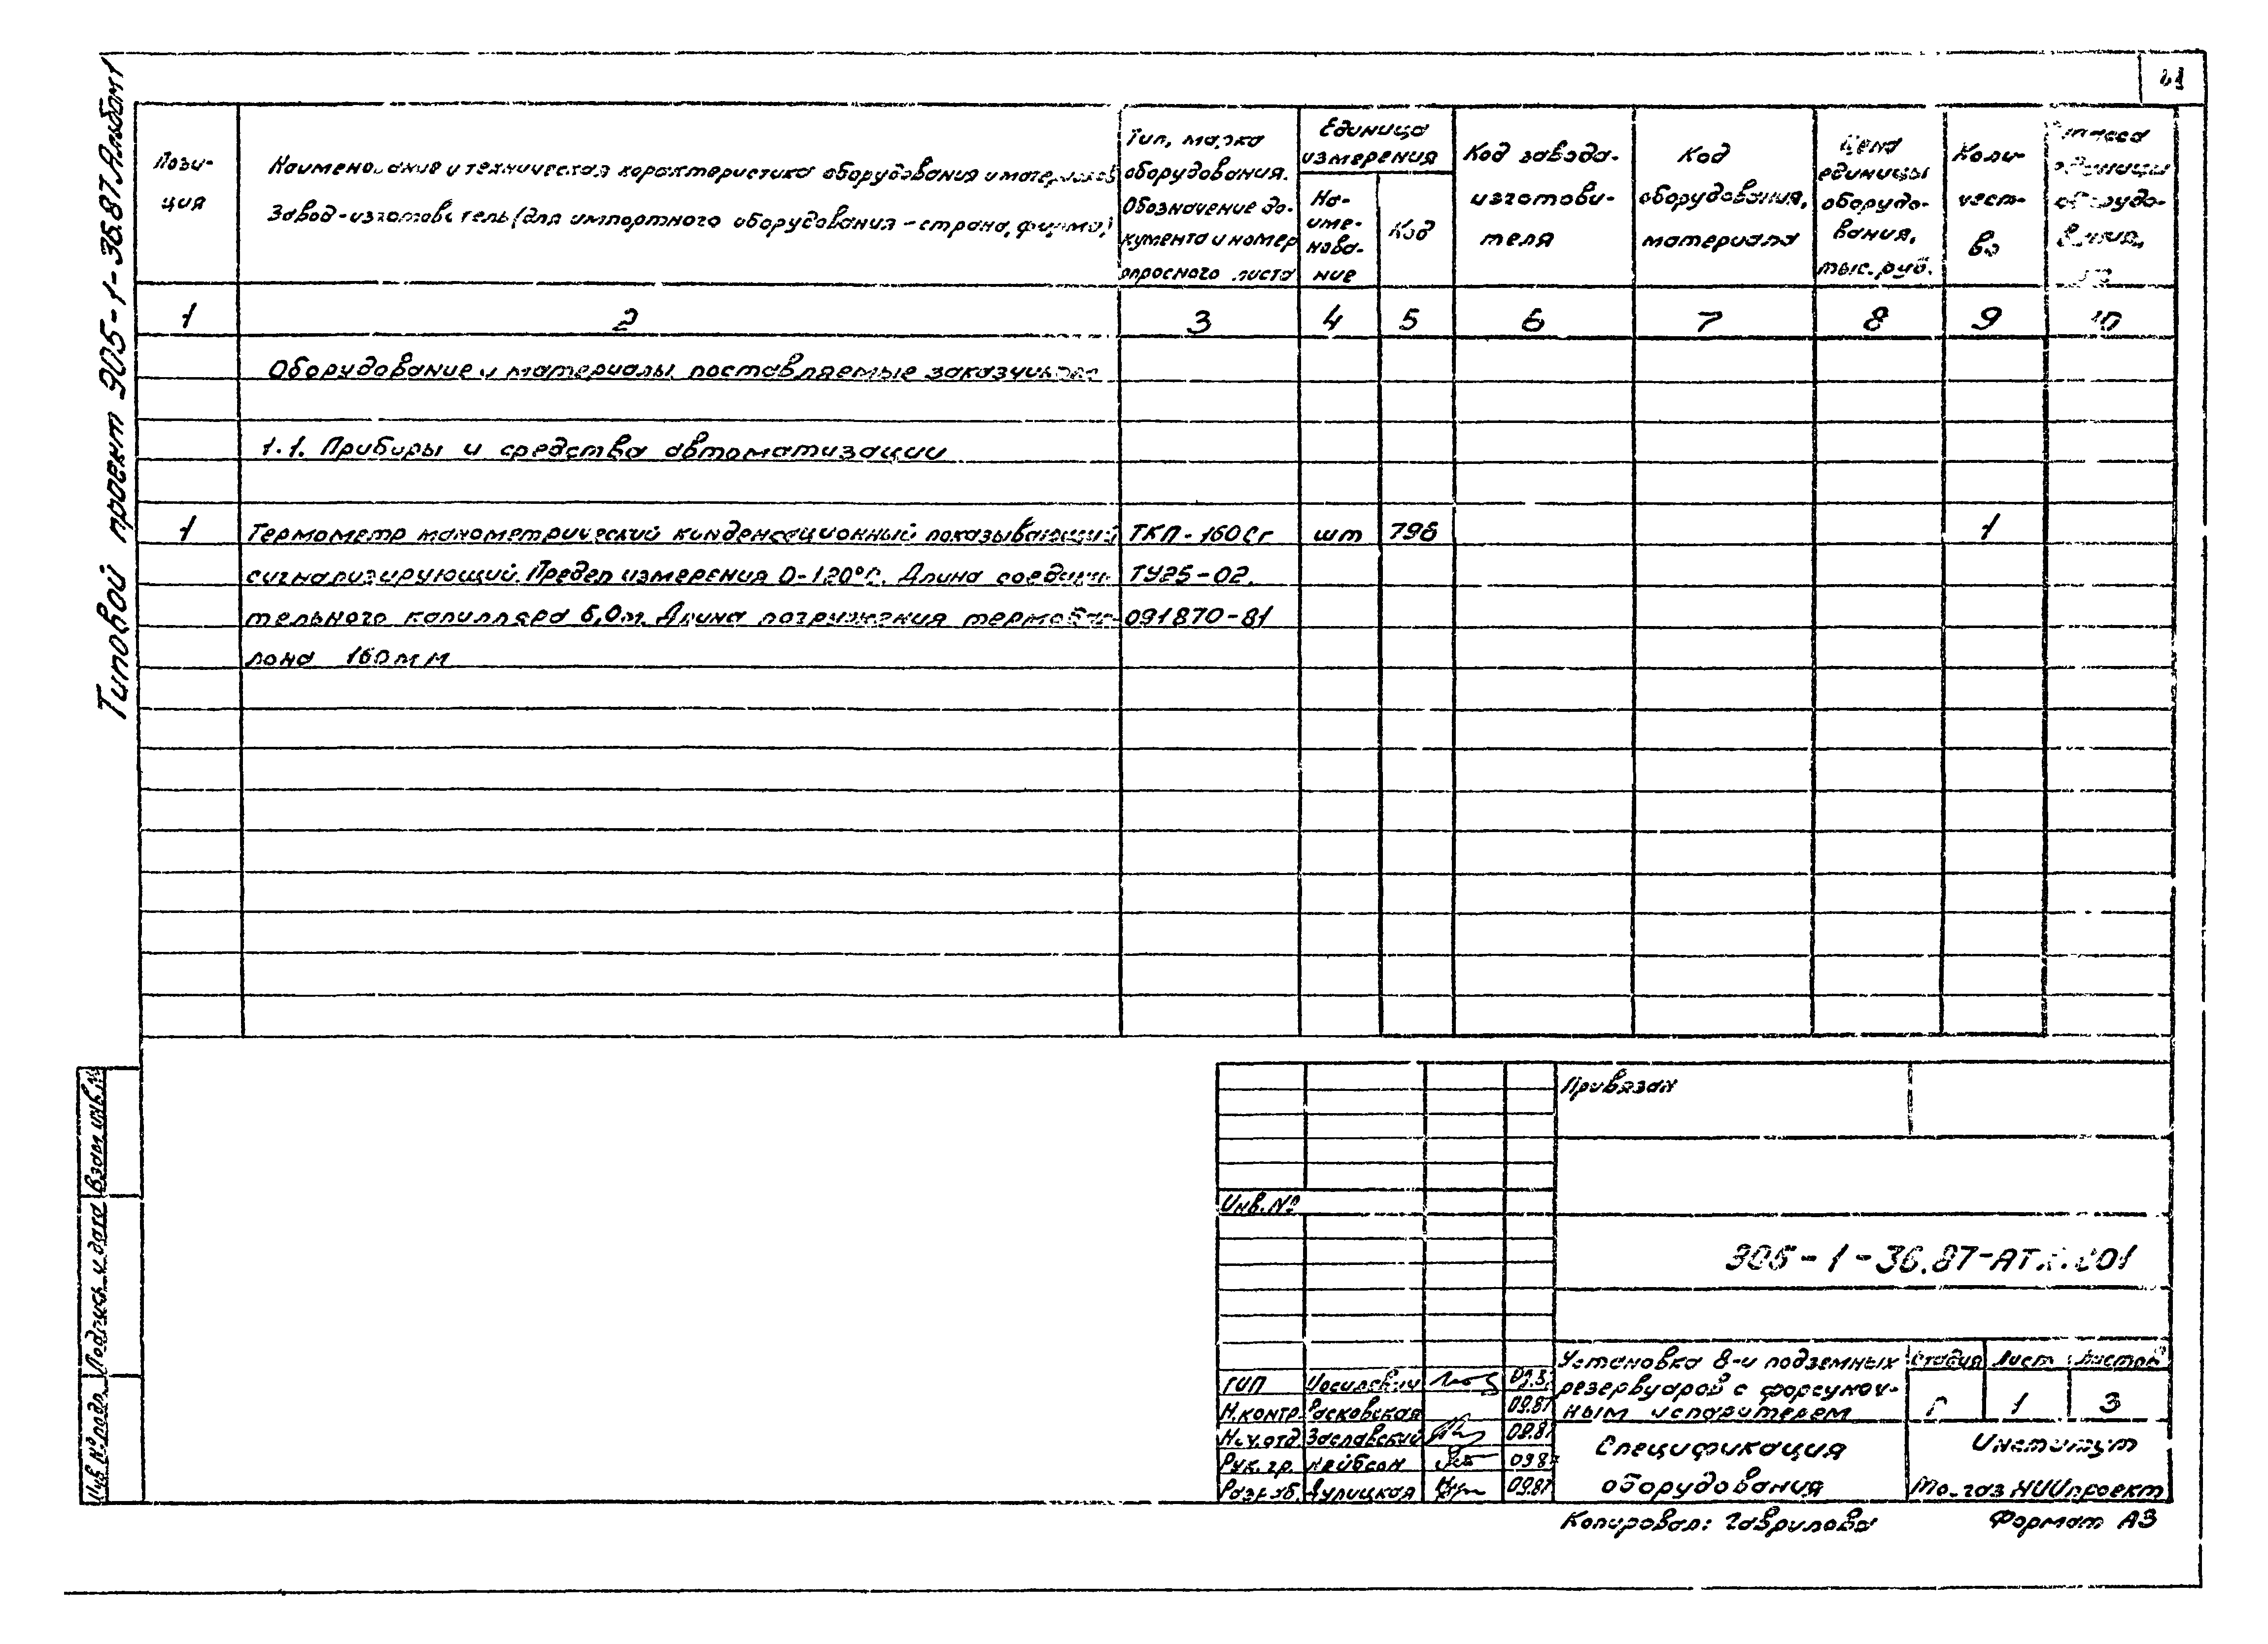 Типовой проект 905-1-36.87 Альбом 1
Пози-
ция
Наименование и техническая характеристика оборудования и материалов
Завод-изготовитель (для импортного оборудования - страна, фирма)
Тип, марка
оборудования.
Обозначение до-
кумента и номер
опросного листа
Единица
измерения
На-
име-
нова-
ние
Код
Код завода-
изготови-
теля
Код
оборудования,
материала
Цена
единицы
оборудо-
вания,
тыс. руб.
Коли-
чест-
во
Масса
единицы
оборудо-
вания,
1 2 3 4 5 6 7 8 9 10
Оборудование и материалы поставляемые заказчиком
1.1. Приборы и средства автоматизации
1 Термометр манометрический конденсационный показывающий ТКП-160Сг шт 796 1
сигнализирующий. Предел измерения 0-120°С. Длина соедини- ТУ25-02.
тельного капилляра 6,0м. Длина погружения термобал- 091870-81
лона 160мм
Взам инв.№
Подпись и дата
Инв № подл.
Привязан
Инв. №
905-1-36.87-АТ
Установка 8-и подземных
резервуаров с форсуноч-
ным испарителем
Стадия Лист Листов
Р 1 3
ГИП 09.87
Н.контр. Расковская 09.87
Нач.отд. Заславский 09.87
Рук. гр. Лейбсон 09.87
Разраб. 09.87
Спецификация
оборудования
Институт
МосгазНИИпроект
Копировал: Гаврилова
Формат А3